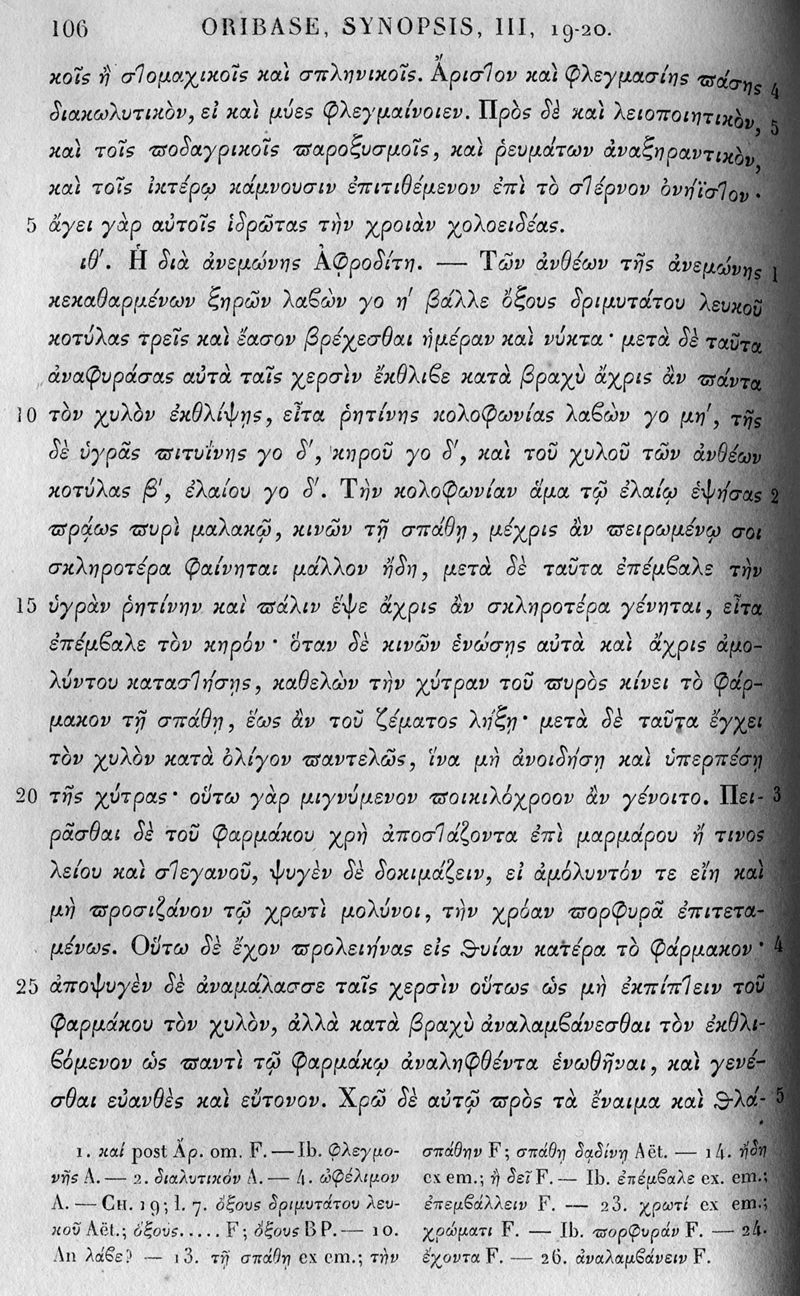 106 ORIBASE, SYNOPSIS, III, 19-20.
κοῖς ἢ στομαχικοῖς καὶ σπληνικοῖς. Ἄριστον καὶ φλεγμασίης πάσης 4
διακωλυτικὸν, εἰ καὶ μύες φλεγμαίνοιεν. Πρὸς δὲ καὶ λειοποιητικὸν, 5
καὶ τοῖς ποδαγρικοῖς παροξυσμοῖς, καὶ ῥευμάτων ἀναξηραντικὸν,
καὶ τοῖς ἰκτέρῳ κάμνουσιν ἐπιτιθέμενον ἐπὶ τὸ στέρνον ὀνήϊστον·
5 ἄγει γὰρ αὐτοῖς ἱδρῶτας τὴν χροιὰν χολοειδέας.
ιθʹ. Ἡ διὰ ἀνεμώνης Ἀφροδίτη. — Τῶν ἀνθέων τῆς ἀνεμώνης 1
κεκαθαρμένων ξηρῶν λαβὼν γο ηʹ βάλλε ὄξους δριμυτάτου λευκοῦ
κοτύλας τρεῖς καὶ ἔασον βρέχεσθαι ἡμέραν καὶ νύκτα· μετὰ δὲ ταῦτα
ἀναφυράσας αὐτὰ ταῖς χερσὶν ἔκθλιβε κατὰ βραχὺ ἄχρις ἂν πάντα
10 τὸν χυλὸν ἐκθλίψῃς, εἶτα ῥητίνης κολοφωνίας λαβὼν γο μηʹ, τῆς
δὲ ὑγρᾶς πιτυΐνης γο δʹ, κηροῦ γο δʹ, καὶ τοῦ χυλοῦ τῶν ἀνθέων
κοτύλας βʹ, ἐλαίου γο δʹ. Τὴν κολοφωνίαν ἅμα τῷ ἐλαίῳ ἑψήσας 2
πράως πυρὶ μαλακῷ, κινῶν τῇ σπάθῃ, μέχρις ἂν πειρωμένῳ σοι
σκληροτέρα φαίνηται μάλλον ἤδη, μετὰ δὲ ταῦτα ἐπέμβαλε τὴν
15 ὑγρὰν ῥητίνην καὶ πάλιν ἕψε ἄχρις ἂν σκληροτέρα γένηται, εἶτα
ἐπέμβαλε τὸν κηρόν· ὅταν δὲ κινῶν ἑνώσῃς αὐτὰ καὶ ἄχρις ἀμο-
λύντου καταστήσῃς, καθελὼν τὴν χύτραν τοῦ πυρὸς κίνει τὸ φάρ-
μακον τῇ σπάθῃ, ἕως ἂν τοῦ ζέματος λήξῃ· μετὰ δὲ ταῦτα ἔγχει
τὸν χυλὸν κατὰ ὀλίγον παντελῶς, ἵνα μὴ ἀνοιδήσῃ καὶ ὑπερπέσῃ
20 τῆς χύτρας· οὕτω γὰρ μιγνύμενον ποικιλόχροον ἂν γένοιτο. Πει- 3
ρᾶσθαι δὲ τοῦ φαρμάκου χρὴ ἀποστάζοντα ἐπὶ μαρμάρου ἤ τινος
λείου καὶ στεγανοῦ, ψυγὲν δὲ δοκιμάζειν, εἰ ἀμόλυντόν τε εἴη καὶ
μὴ προσιζάνον τῷ χρωτὶ μολύνοι, τὴν χρόαν πορφυρᾶ ἐπιτετα-
μένως. Οὕτω δὲ ἔχον προλειήνας εἰς θυίαν κατέρα τὸ φάρμακον· 4
25 ἀποψυγὲν δὲ ἀναμάλασσε ταῖς χερσὶν οὕτως ὡς μὴ ἐκπίπτειν τοῦ
φαρμάκου τὸν χυλὸν, ἀλλὰ κατὰ βραχὺ ἀναλαμβάνεσθαι τὸν ἐκθλι-
βόμενον ὡς παντὶ τῷ φαρμάκῳ ἀναληφθέντα ἑνωθῆναι, καὶ γενέ-
σθαι εὐανθὲς καὶ εὔτονον. Χρῶ δὲ αὐτῷ πρὸς τὰ ἔναιμα καὶ θλά- 5
1. καί post Ἄρ. om. F. — Ib. φλεγμο-
νῆς A. — 2. διαλυτικόν A. — 4. ὠφέλιμον
A. — CH. 19; l. 7. ὄξους δριμυτάτου λευ-
κοῦ Aët.; ὄξους..... F; ὄξους B P. — 10.
An λάβε? — 13. τῇ σπάθῃ ex em.; τὴν
σπάθην F; σπάθῃ δᾳδίνῃ Aët. — 14. ἤδη
ex em.; ἢ δεῖ F. — Ib. ἐπέμβαλε ex. em.;
ἐπεμβάλλειν F. — 23. χρωτί ex em.;
χρώματι F. — Ib. πορφυράν F. — 24.
ἔχοντα F. — 26. ἀναλαμβάνειν F.